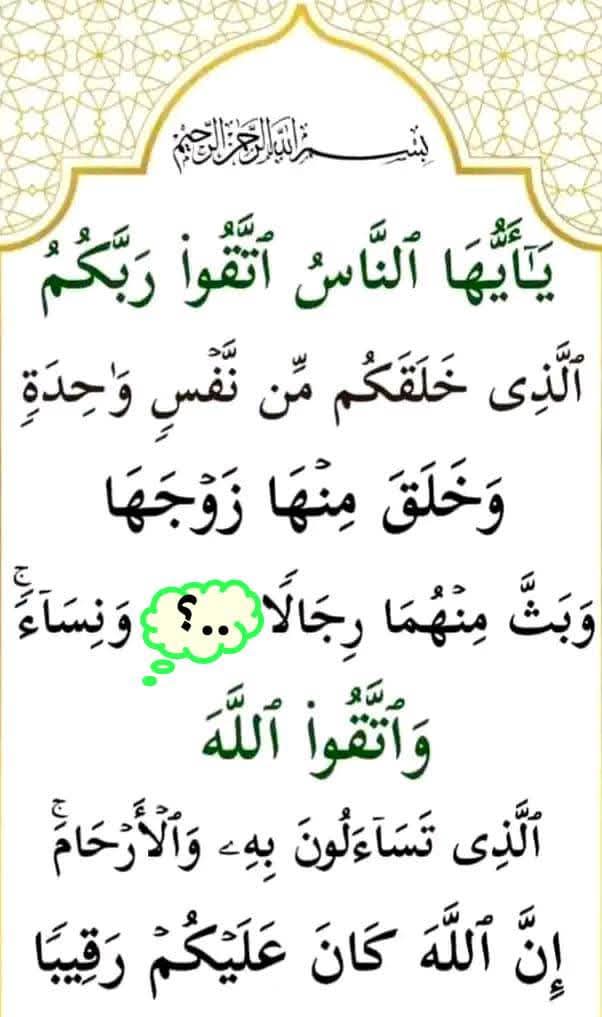 بِسْمِ اللَّهِ الرَّحْمَٰنِ الرَّحِيمِ
يَٰٓأَيُّهَا ٱلنَّاسُ ٱتَّقُوا۟ رَبَّكُمُ
ٱلَّذِى خَلَقَكُم مِّن نَّفْسٍ وَٰحِدَةٍ
وَخَلَقَ مِنْهَا زَوْجَهَا
وَبَثَّ مِنْهُمَا رِجَالًا ..؟ وَنِسَآءً ۚ
وَٱتَّقُوا۟ ٱللَّهَ
ٱلَّذِى تَسَآءَلُونَ بِهِۦ وَٱلْأَرْحَامَ ۚ
إِنَّ ٱللَّهَ كَانَ عَلَيْكُمْ رَقِيبًا